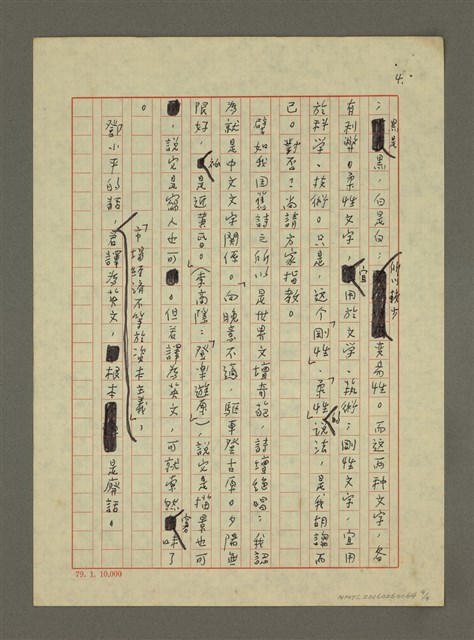 4.
；黑是黑，白是白；所以較少變易性。而这两种文字，各
有利弊。柔性文字，宜用於文学、藝術；剛性文字，宜用
於科学、技術。只是，这个「剛性」、「柔性」的说法，是我胡謅而
已。對否？尚請方家指教。
譬如我国舊詩之所以是世界文壇奇葩，詩壇絕唱；我認
為就是中文文字關係。「向晚意不適，驅車登古原。夕陽無
限好，祇是近黃昏。」（李商隱：「登樂遊原」），說它是描景也可
，說它是寫人也可。但若譯為英文，可就索然寡味了
。
鄧小平的話，「市場經濟不等於資本主義」，若譯為英文，根本是廢話。
79. 1. 10,000